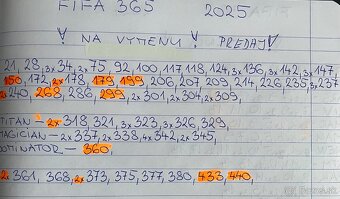 FIFA 365 2025
! NA VÝMENU! PREDAJ!
21, 28, 3x34, 2x75, 92, 100, 117, 118, 124, 3x136, 3x142, 3x147,
150, 172, 2x178, 179, 199, 206, 207, 209, 214, 226, 235, 3x237
2x240, 268, 286, 299, 2x301, 2x304, 2x309,
TITAN - 2x318, 321, 3x323, 3x326, 329,
MAGICIAN - 2x337, 2x338, 4x342, 2x345,
DOMINATOR - 360,
2x361, 368, 2x373, 375, 377, 380, 433, 440,